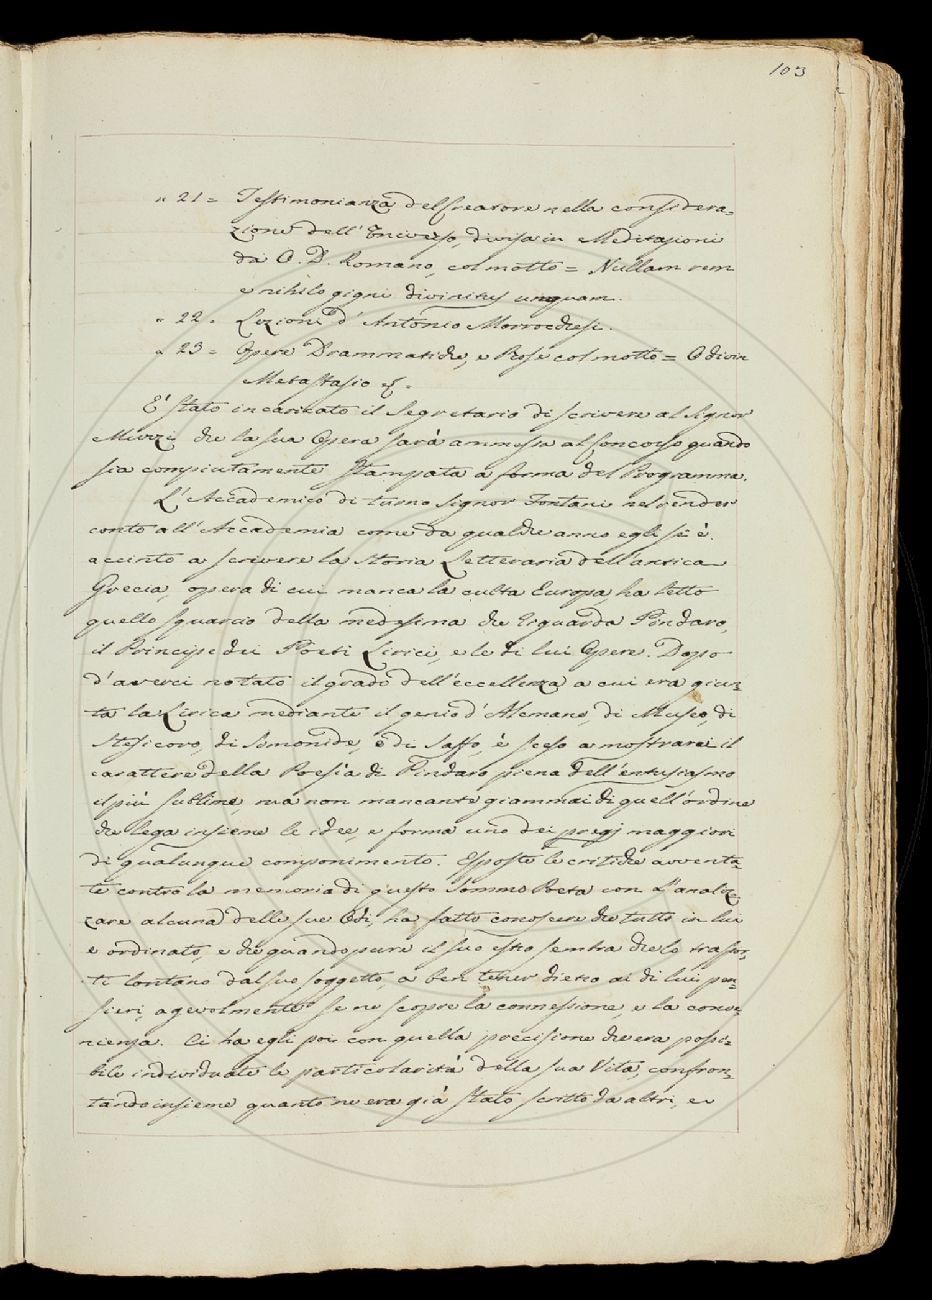 103
" 21 = Testimonianza del Creatore nella considera=
zione dell'Universo, divisa in Meditazioni
da O. D. Romano, col motto = Nullam rem
e nihilo gigni divinitus unquam.
" 22 = Lezioni d'Antonio Morrocchesi.
" 23 = Opere Drammatiche, e Prose col motto = O divin
Metastasio &.
E' stato incaricato il Segretario di scrivere al Signor
Micozzi che la sua Opera sarà ammessa al Concorso quando
sia compiutamente stampata a forma del Programma.
L'Accademico di turno Signor Fontani nel render
conto all'Accademia come da qualche anno egli si è
accinto a scrivere la Storia Letteraria dell'antica
Grecia, opera di cui manca la culta Europa, ha letto
quello squarcio della medesima che riguarda Pindaro,
il Principe dei Poeti Lirici, e le di lui Opere. Dopo
d'averci notato il grado dell'eccellenza a cui era giun=
ta la Lirica mediante il genio d'Alcmane, di Museo, di
Stesicoro, di Simonide, e di Saffo, è sceso a mostrarci il
carattere della Poesia di Pindaro piena dell'entusiasmo
il più sublime, ma non mancante giammai di quell'ordine
che lega insieme le idee, e forma uno dei pregj maggiori
di qualunque componimento. Esposte le critiche avventa=
te contro la memoria di questo sommo Poeta con l'analiz=
zare alcuna delle sue Odi, ha fatto conoscere che tutto in lui
è ordinato, e che quando pure il suo estro sembra che lo traspor=
ti lontano dal suo soggetto, a ben tener dietro ai di lui pen=
sieri, agevolmente se ne scopre la connessione, e la conve=
nienza. Ci ha egli poi con quella precisione che era possi=
bile individuate le particolarità della sua Vita, confron=
tando insieme quanto ne era già stato scritto da altri, e